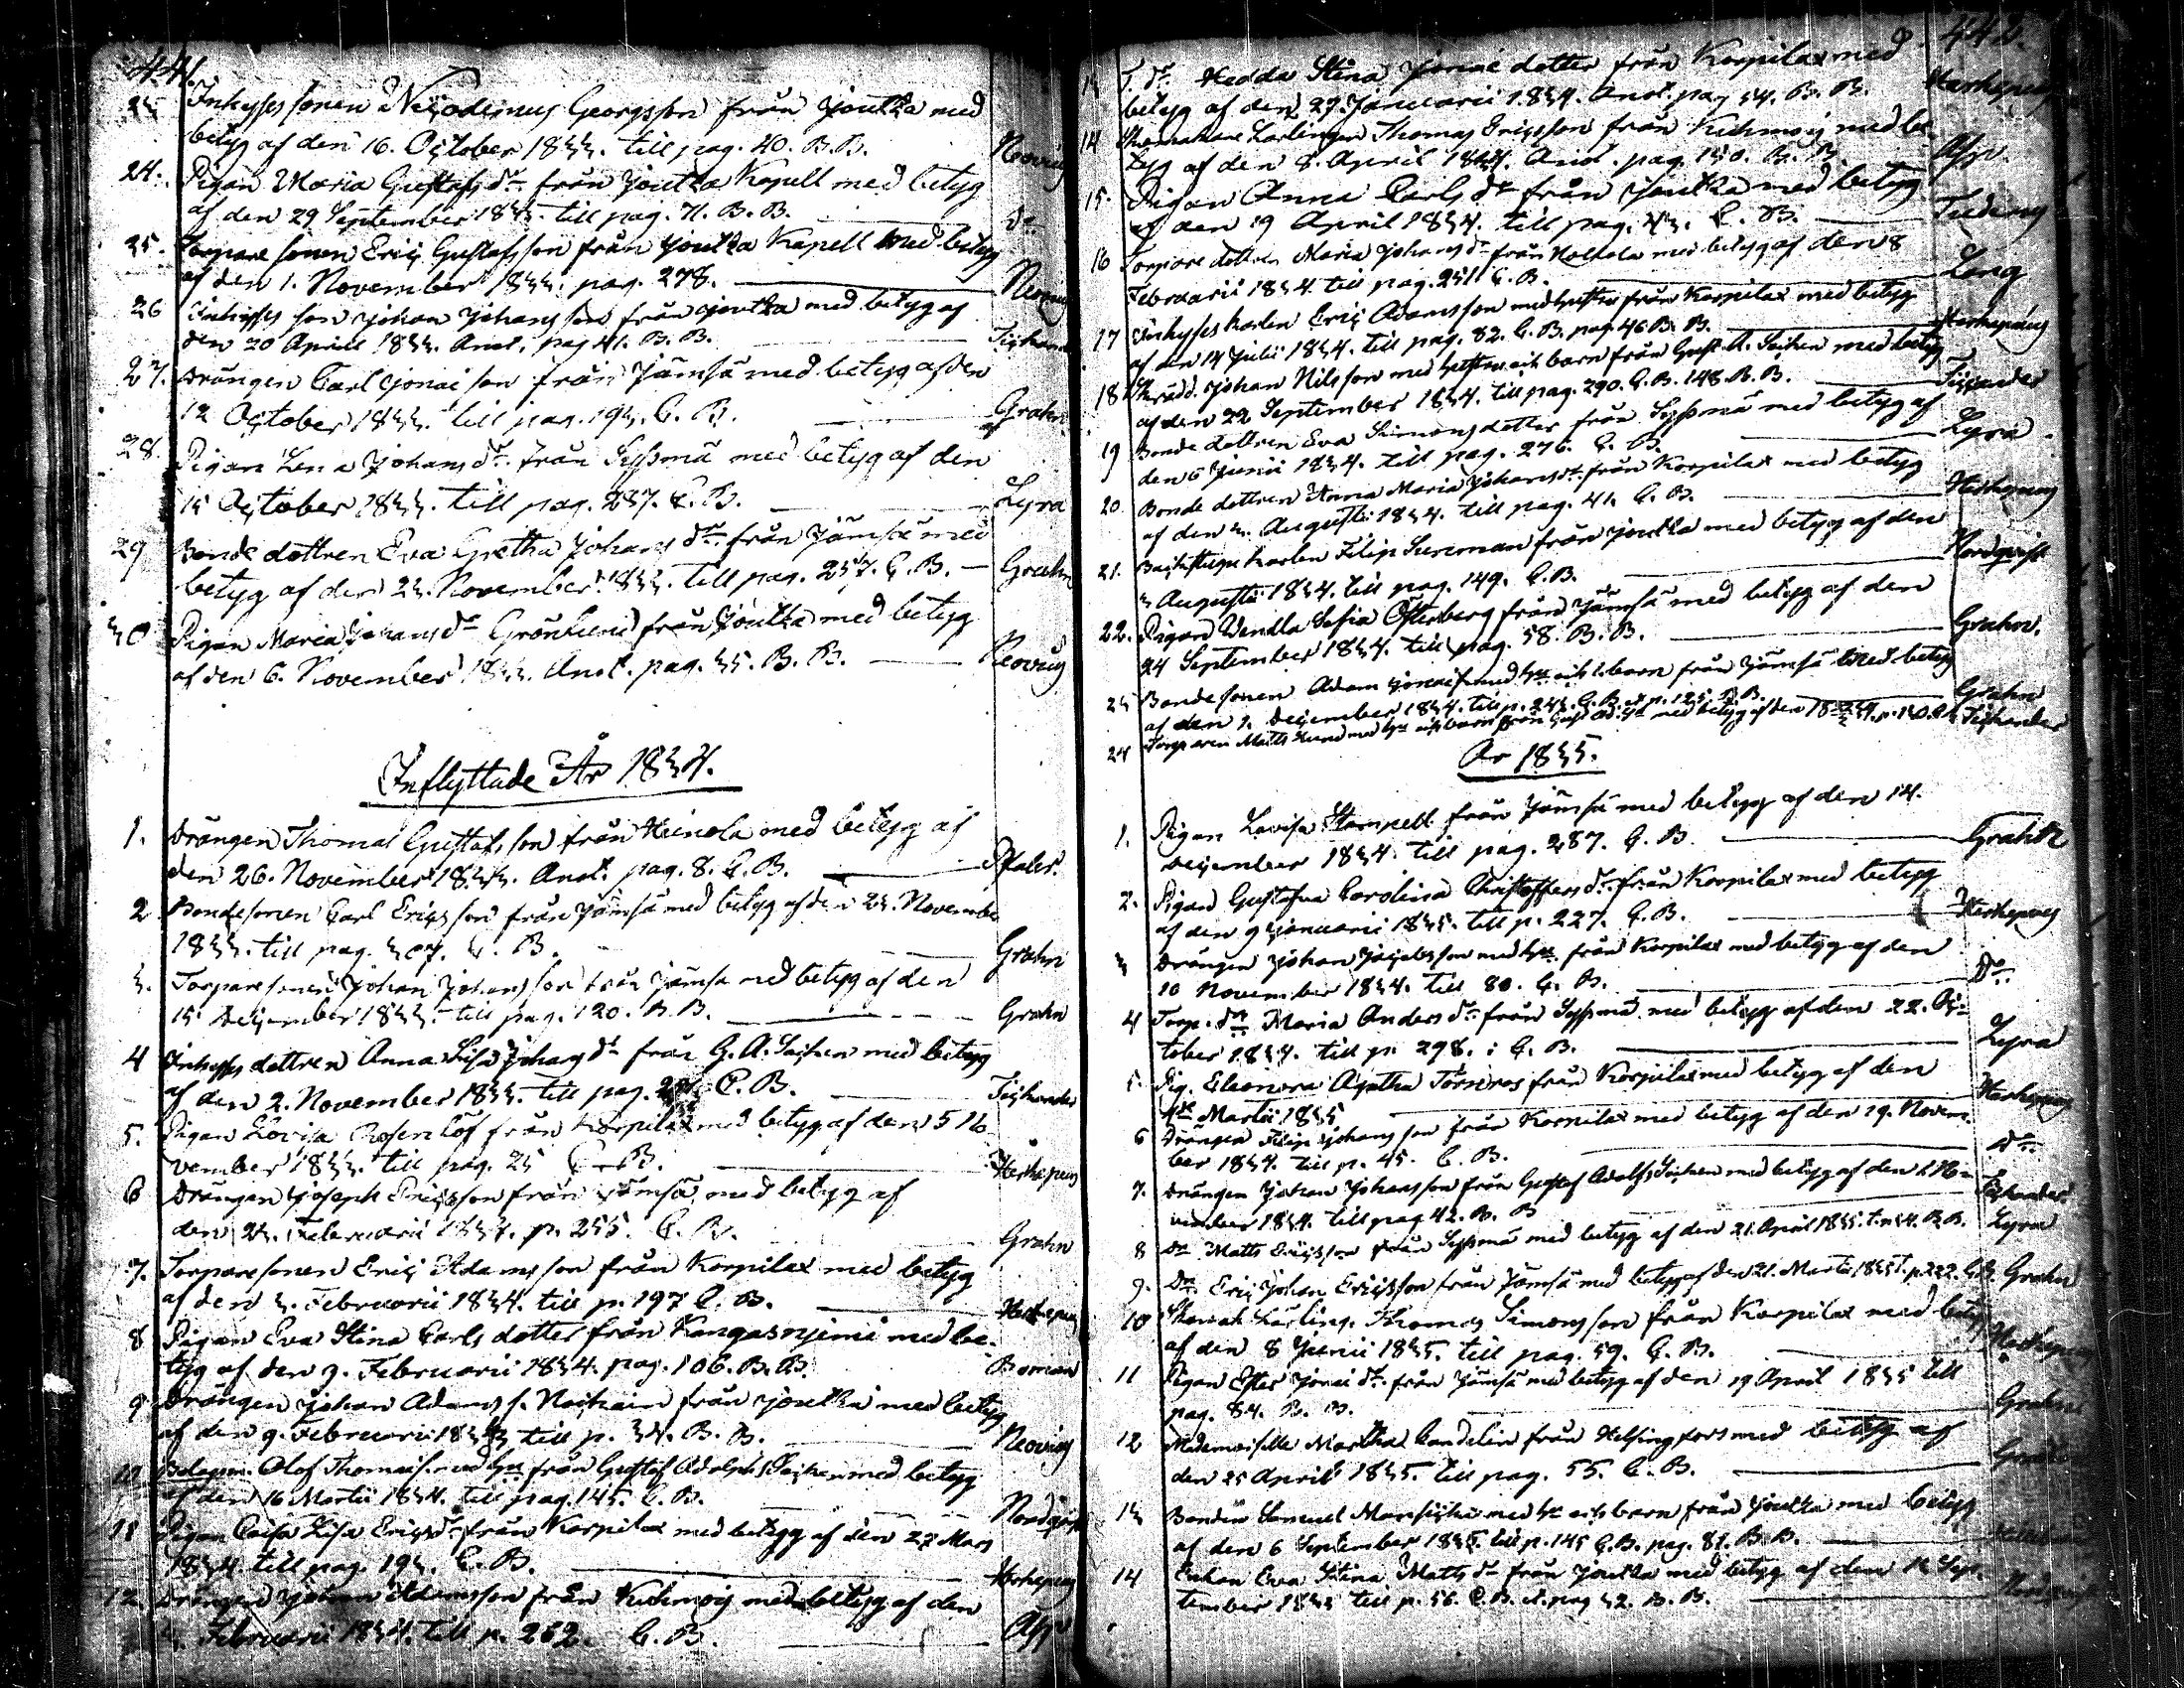 441.
23 Inhysses sonen Nicodemus Georgsson från Joutza med
betyg af den 16. October 1833. till pag. 40. B.B. Neovius
24. Pigan Maria Gustafs dr från Joutza Kapell med betyg
af den 29 September 1833. till pag. 71. B.B. Do
25. Torpare sonen Eric Gustafsson från Joutza Kapell med betyg
af den 1. November 1833. pag. 278. Neovius
26 Inhysses son Johan Johansson från Joutza med betyg af
den 20 April 1833. Anot. pag 41. B.B.
27. Drängen Carl Jonaeson från Jämsä med betyg af den
12 October 1833. till pag. 193. C.B. Grahn
28. Pigan Lena Johans dr från Sysmä med betyg af den
15 October 1833. till pag. 287. C.B. Lyra
29 Bonde dottren Eva Gretha Johans dr från Jämsä med
betyg af den 23. November 1833. till pag. 257. C.B. Grahn
30 Pigan Maria Johans dr Grönlund från Joutza med betyg
af den 6. November 1833. Anot. pag. 35. B.B. Neovius
Inflyttade År 1834.
1. Drängen Thomas Gustafsson från Heinola med betyg af
den 26. November 1833. Anot. pag. 8. C.B.
2 Bondesonen Carl Ericsson från Jämsä med betyg af den 23. Novembr
1833. till pag. 307. C.B. Grahn
3. Torpare sonen Johan Johansson från Jämsä med betyg af den
15 December 1833. till pag. 120. B.B. Grahn
4 Inhysses dottren Anna Lisa Johans dr från G. A. Sochen med betyg
af den 2. November 1833. till pag. C.B.
5. Pigan Lovisa Rosenlöf från Korpilax med betyg af den 5 No
vember 1833. till pag. 25 C.B. Herkepæus
6 Drängen Joseph Ericsson från Jämsä med betyg af
den 23. Februarii 1834. p. 255. C.B. Grahn
7. Torparesonen Eric Adamsson från Korpilax med betyg
af den 3. Februarii 1834. till p. 197 C.B. Herkepæus
8 Pigan Eva Stina Carls dotter från Kangasniemi med be-
tyg af den 9. Februarii 1834. pag. 106. B.B.
9 Drängen Johan Adams s. från Joutza med betyg
af den 9. Februarii till p. 34. B.B. Neovius
10 Olof Thomas s. med hu från Gustaf Adolphs Sochen med betyg
af den 16 Martii 1834. till pag. 145. C.B. Nordqvist
11 Pigan Caisa Lisa Erics dr från Korpilax med betyg af den 27 Mars
1834. till pag. 193. C.B. Herkepæus
12. Drängen Johan Adamsson från Kuhmois med betyg af den
3. Februarii 1834. till p. 262. C.B. Asp
442.
13 T. dr Hedda Stina Jonae dotter från Korpilax med
betyg af den 29. Januarii 1834. Anot. pag 54. B.B. Herkepæus
14 Skomakare Lärlingen Thomas Ericsson från Kuhmois med be-
tyg af den 8. April 1834. Anot. pag. 150. B.B. Asp
15. Pigan Anna Carls dr från Joutza med betyg
af den 19 April 1834. till pag. 43. C.B.
16 Torpare dottren Maria Johans dr från Hollola med betyg af den 8
Februarii 1834. till pag. 251 C.B. Lang
17 Inhysses karlen Eric Adamsson med hustru från Korpilax med betyg
af den 14 Julii 1834. till pag. 82. C.B. pag. 46 B.B. Herkepæus
18 Skrädd. Johan Nilsson med hustru och barn från Gust. A. Sochen med betyg
af den 22 September 1834. till pag. 290. C.B. 148. B.B.
19 Bonde dottren Eva Simons dotter från Sysmä med betyg af
den 6 Junii 1834. till pag. 276. C.B. Lyra
20. Bonde dottren Anna Maria Johans dr från Korpilax med betyg
af den 3. Augusti 1834. till pag. 41. C.B. Herkepæus
21. Backstugu karlen Filip Sureman från Joutza med betyg af den
3 Augusti 1834. till pag. 149. C.B. Nordqvist
22. Pigan Wendla Sofia Österberg från Jämsä med betyg af den
24 September 1834. till pag. 58. B.B. Grahn.
23 Bonde sonen Adam Jonaes. med hu och 1. barn från Jämsä med betyg
af den 1. December 1834. till p. 243. C.B. p. 125. B.B. Grahn
24 Torparen Matts Lund med hu och barn från
År 1835.
1. Pigan Lovisa Stampell från Jämsä med betyg af den 14.
December 1834. till pag. 287. C.B. Grahn
2. Pigan Gustafva Carolina Christoffers dr från Korpilax med betyg
af den 9 Januarii 1835. till p. 227. C.B. Herkepæus
3 Drängen Johan Jacobsson med hu från Korpilax med betyg af den
10 November 1834. till 80. C.B. Do
4 Torp. dr Maria Anders dr från Sysmä med betyg af den 22. Oc-
tober 1834. till p. 298. i C.B. Lyra
5 Pig. Eleonora Agatha Törnroos från Korpilax med betyg af den
Martii 1835 Herkepæus
6 Drängen Filip Johansson från Korpilax med betyg af den 19. Novem-
ber 1834. till p. 45. C.B. Do
7. Drängen Johan Johansson från Gustaf Adolfs Sochen med betyg af den 1. No-
vember 1834. till pag 42. B.B
8 Do Matts Ericsson från Sysmä med betyg af den 21. April 1835. t. p. 34. B.B. Lyra
9. Do Eric Johan Ericsson från Jämsä med betyg af den 21. Martii 1835 t. p. 222. C.B. Grahn
10 Skomak. Lärling. Thomas Simonsson från Korpilax med betyg
af den 8 Junii 1835. till pag. 59. C.B. Herkepæus
11 Pigan Ester Jonae dr från Jämsä med betyg af den 19 April 1835 till
pag. 84. B.B. Grahn
12 Mademoiselle Martha Candelin från Helsingfors med betyg af
den 25 April 1835. till pag. 55. C.B.
13 Bonden Samuel med hu och barn från Joutza med betyg
af den 6 September 1835. till p. 145 C.B. pag. 81. B.B.
14 Enkan Eva Stina Matts dr från Joutza med betyg af den 12 Sep-
tember 1835 till p. 56. C.B. pag 32. B.B.